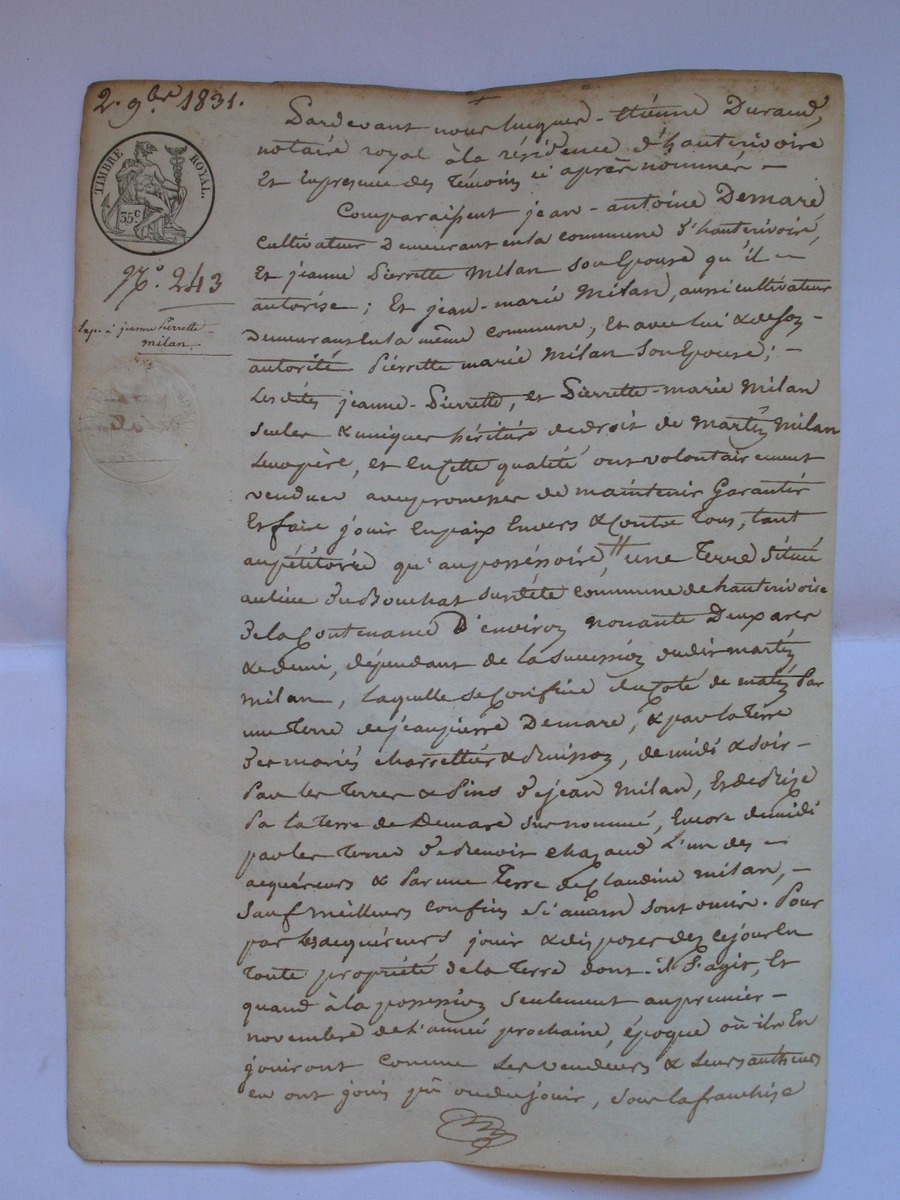 2. 9bre 1831.
TIMBRE ROYAL.
35c
No. 243
Exp. à jeanne Pierrette
milan.
Pardevant nous hugues - Etiénne Durand,
notaire royal à la résidence d'hauterivoire
Et Enpresence des Témoins ci après nommés -
Comparaissent jean - antoine Demare
Cultivateur Demeurant enla commune d'hauterivoire,
Et jeanne Pierrette Milan son Epouse qu'il -
autorise ; Et jean - marie Milan, aussi cultivateur
Demeurant Enla même commune, Et avec lui & desoz
autorité Pierrette marie Milan son Epouse ; -
Lesdites jeanne - Pierrette, et Pierrette - marie Milan
seules & uniques héritières dedroit de Martin Milan
Leurpère, et Encette qualité ont volontairement
vendues avec promesses de maintenir Garantir
Et faire jouir Enpaix Envers & Contre Tous, tant
aupétitoire qu'aupossessoire, une Terre située
aulieu du Bouchat surdite commune de hauterivoire
de la Contenance d'environ nonante Deux ares
& demi, dépendant de la succession dudit martin
milan, laquelle se Confine du Coté de matin Par
une Terre de jeanpierre Demare, & par la Terre
des mariés charrettier & Buisson, de midi & soir -
Par les Terres & Pins de jean Milan, Et de Bize
Pa la Terre de Demare surnommé, Encore de midi
par les Terres de Benoit chazaud L'un des -
acquéreurs & Par une Terre de Claudine Milan, -
Sauf meilleurs confins si aucuns sont omis. Pour
par les acquéreurs jouir & disposer dez cejour En
Toute propriété de la Terre dont il s'agit, Et
quand à la possession seulement au premier -
novembre de l'année prochaine, époque où ils En
jouiront comme Les vendeurs & Leurs autheurs
en ont joui pû ou du jouir, sous la franchise